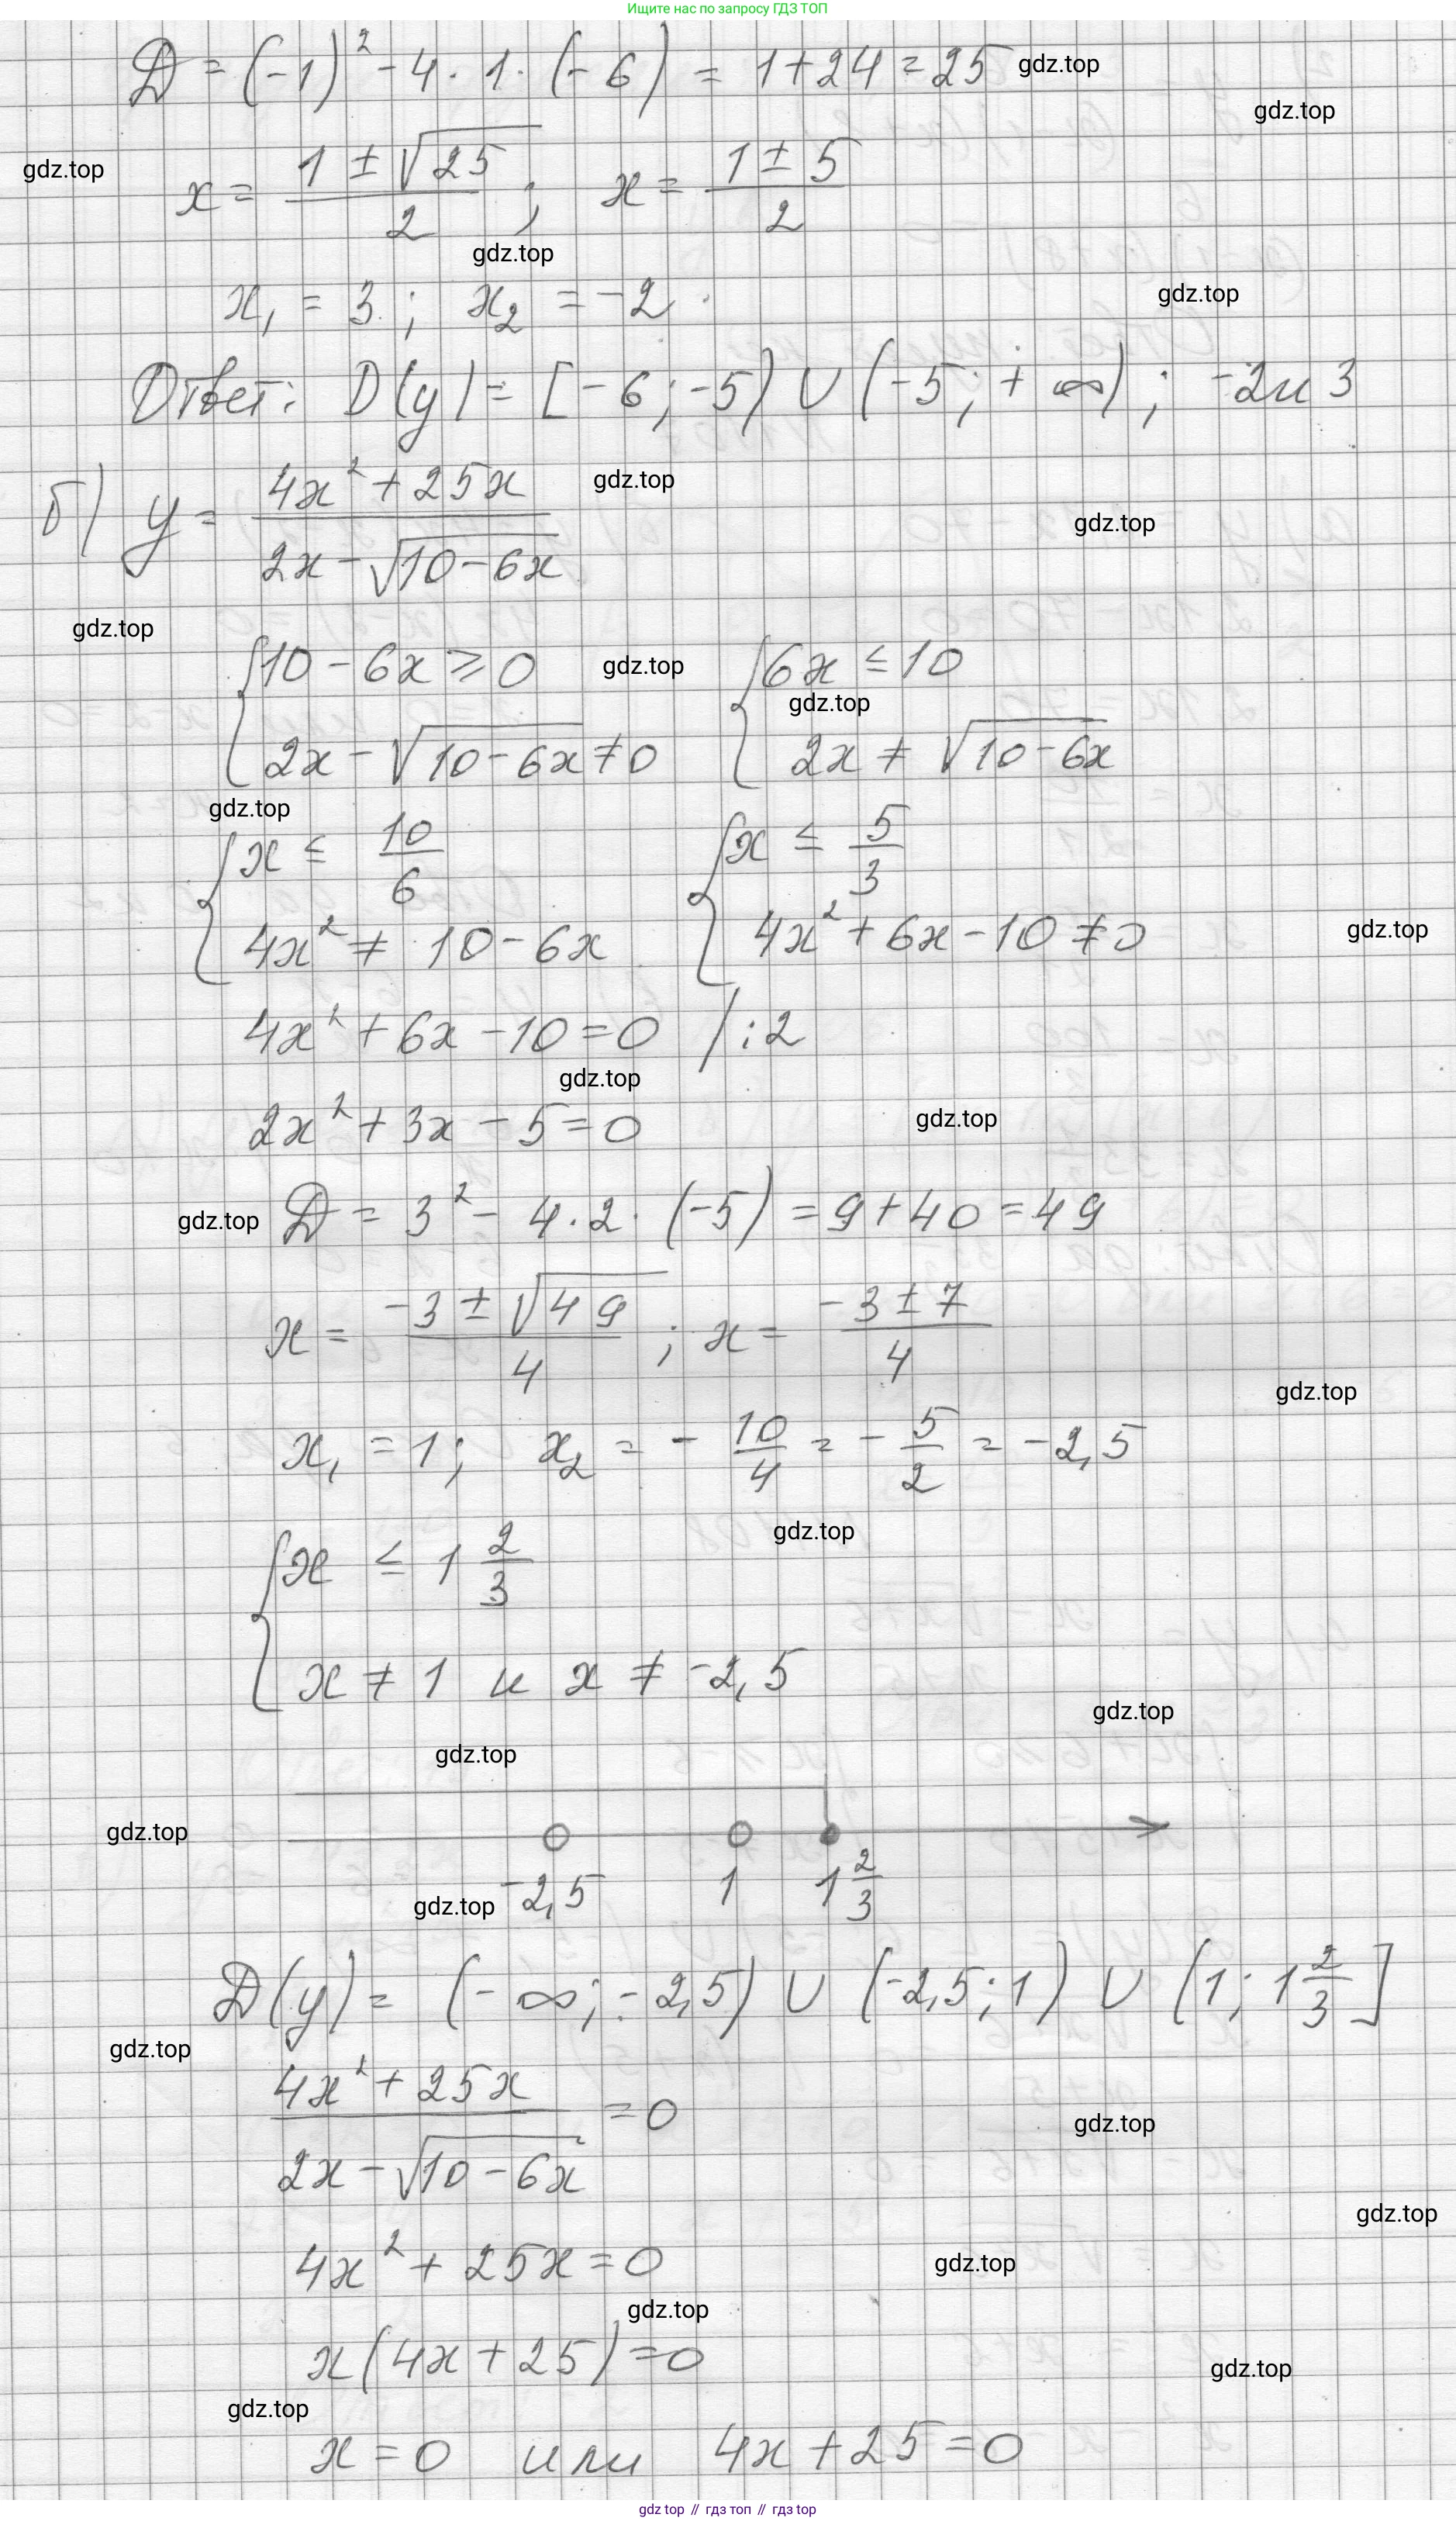 Ищите нас по запросу ГДЗ ТОП
D = (-1)² - 4 · 1 · (-6) = 1 + 24 = 25 gdz.top
gdz.top
gdz.top
x = (1 ± √25)/2 ; x = (1 ± 5)/2
gdz.top
gdz.top
x₁ = 3 ; x₂ = -2
Ответ: D(y) = [-6; -5) ∪ (-5; +∞); -2 и 3
б) y = (4x² + 25x)/(2x - √(10 - 6x))
gdz.top
gdz.top
gdz.top
{10 - 6x ≥ 0 gdz.top {6x ≤ 10
gdz.top
2x - √(10 - 6x) ≠ 0 2x ≠ √(10 - 6x)
gdz.top
{x ≤ 10/6 {x ≤ 5/3
4x² ≠ 10 - 6x 4x² + 6x - 10 ≠ 0 gdz.top
4x² + 6x - 10 = 0 / : 2
gdz.top
gdz.top
2x² + 3x - 5 = 0
gdz.top D = 3² - 4 · 2 · (-5) = 9 + 40 = 49
x = (-3 ± √49)/4 ; x = (-3 ± 7)/4
gdz.top
x₁ = 1; x₂ = - 10/4 = - 5/2 = -2,5
gdz.top
{x ≤ 1 2/3
x ≠ 1 и x ≠ -2,5
gdz.top
gdz.top
gdz.top
gdz.top -2,5 1 1 2/3
D(y) = (-∞; -2,5) ∪ (-2,5; 1) ∪ (1; 1 2/3]
gdz.top
(4x² + 25x)/(2x - √(10 - 6x)) = 0
gdz.top
gdz.top
4x² + 25x = 0 gdz.top
gdz.top
x(4x + 25) = 0
gdz.top
gdz.top
x = 0 или 4x + 25 = 0
gdz top // гдз топ // гдз top